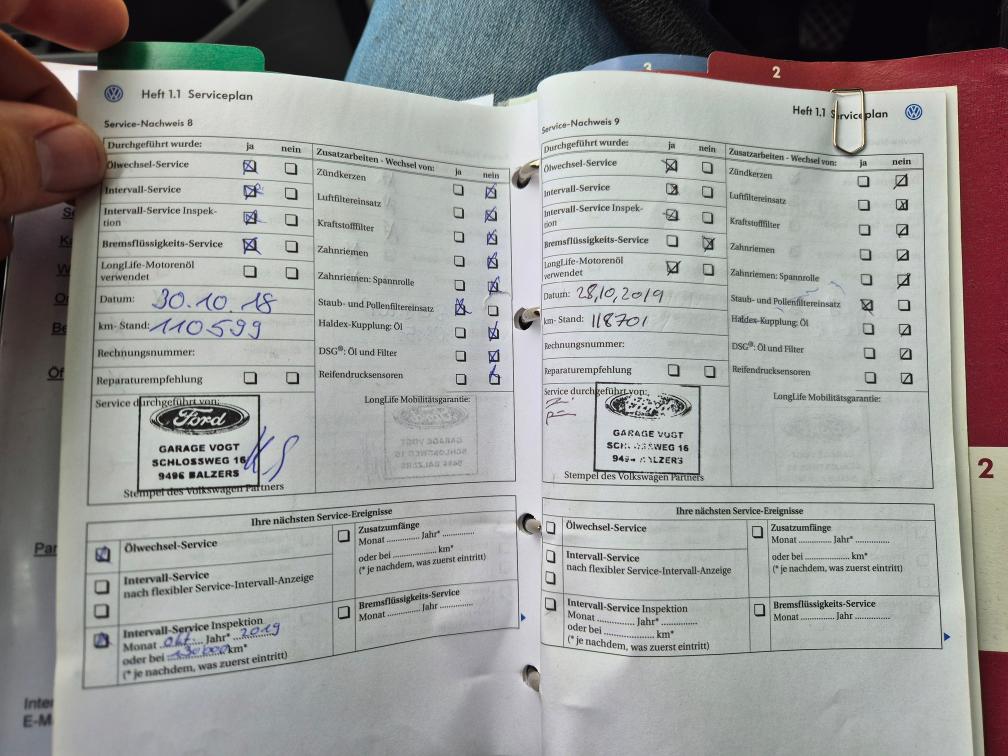 3
2
Heft 1.1 Serviceplan
Service-Nachweis 8
Durchgeführt wurde: ja nein
Ölwechsel-Service
Intervall-Service
Intervall-Service Inspek-
tion
Bremsflüssigkeits-Service
LongLife-Motorenöl
verwendet
Datum: 30.10.18
km- Stand: 110599
Rechnungsnummer:
Reparaturempfehlung
Zusatzarbeiten - Wechsel von: ja nein
Zündkerzen
Luftfiltereinsatz
Kraftstofffilter
Zahnriemen
Zahnriemen: Spannrolle
Staub- und Pollenfiltereinsatz
Haldex-Kupplung: Öl
DSG®: Öl und Filter
Reifendrucksensoren
Service durchgeführt von:
Ford
GARAGE VOGT
SCHLOSSWEG 16
9496 BALZERS
Stempel des Volkswagen Partners
LongLife Mobilitätsgarantie:
Ihre nächsten Service-Ereignisse
Ölwechsel-Service
Intervall-Service
nach flexibler Service-Intervall-Anzeige
Intervall-Service Inspektion
Monat Okt Jahr* 2019
oder bei 130000 km*
(* je nachdem, was zuerst eintritt)
Zusatzumfänge
Monat ............ Jahr* ............
oder bei ............ km*
(* je nachdem, was zuerst eintritt)
Bremsflüssigkeits-Service
Monat ............ Jahr ............
Heft 1.1 Serviceplan
Service-Nachweis 9
Durchgeführt wurde: ja nein
Ölwechsel-Service
Intervall-Service
Intervall-Service Inspek-
tion
Bremsflüssigkeits-Service
LongLife-Motorenöl
verwendet
Datum: 28,10,2019
km- Stand: 118701
Rechnungsnummer:
Reparaturempfehlung
Zusatzarbeiten - Wechsel von: ja nein
Zündkerzen
Luftfiltereinsatz
Kraftstofffilter
Zahnriemen
Zahnriemen: Spannrolle
Staub- und Pollenfiltereinsatz
Haldex-Kupplung: Öl
DSG®: Öl und Filter
Reifendrucksensoren
Service durchgeführt von:
GARAGE VOGT
Stempel des Volkswagen Partners
LongLife Mobilitätsgarantie:
Ihre nächsten Service-Ereignisse
Ölwechsel-Service
Intervall-Service
nach flexibler Service-Intervall-Anzeige
Intervall-Service Inspektion
Monat ............ Jahr* ............
oder bei ............ km*
(* je nachdem, was zuerst eintritt)
Zusatzumfänge
Monat ............ Jahr* ............
oder bei ............ km*
(* je nachdem, was zuerst eintritt)
Bremsflüssigkeits-Service
Monat ............ Jahr ............
2